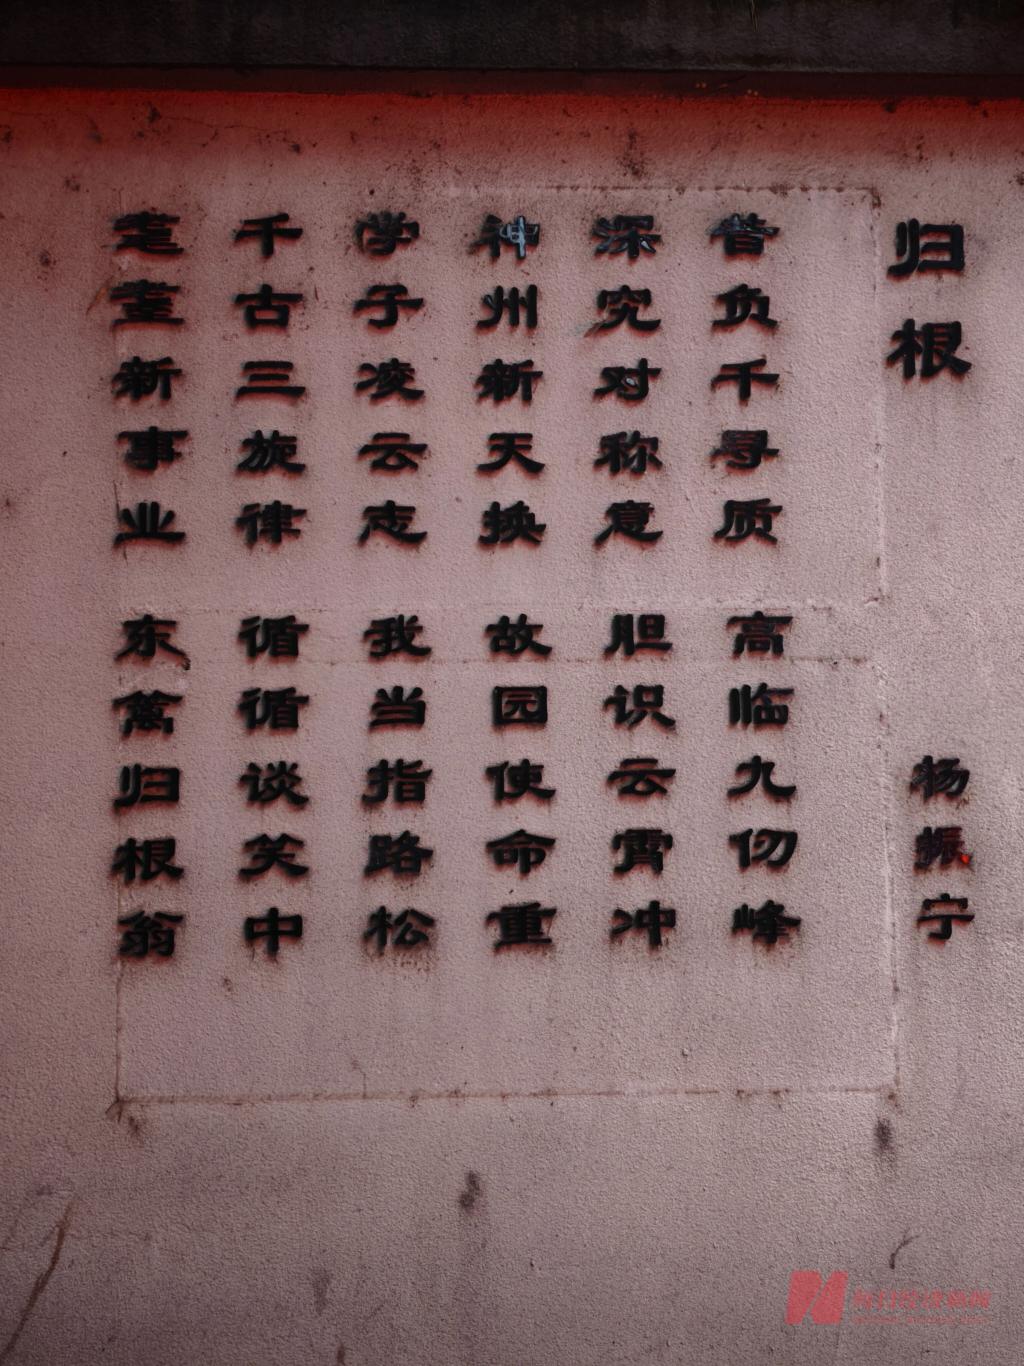 归根
杨振宁
昔负千寻质 高临九仞峰
深究对称意 胆识云霄冲
神州新天换 故园使命重
学子凌云志 我当指路松
千古三旋律 循循谈笑中
耄耋新事业 东篱归根翁
每日经济新闻